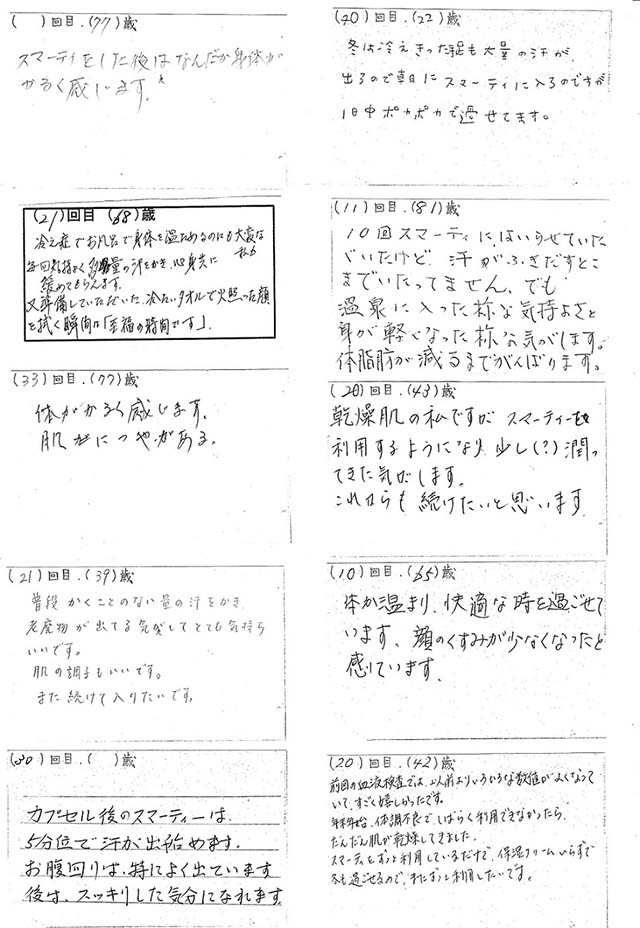 ( )回目.(77)歳
スマーティをした後はなんだか身体が
かるく感じます。
(21)回目 (68)歳
冷え症でお風呂で身体を温ためるのにも大変な私も
毎回気持よく多量の汗をかき、心身共に
緩めてもらえます。
又準備していただいた冷たいタオルで火照った顔
を拭く瞬間は「至福の時間です」。
(33)回目.(77)歳
体がかるく感じます。
肌がにつやがある。
(21)回目.(39)歳
普段かくことのない量の汗をかき
老廃物が出てる気がしてとても気持ち
いいです。
肌の調子もいいです。
また続けて入りたいです。
(30)回目.( )歳
カプセル後のスマーティーは、
5分位で汗が出始めます。
お腹回りは、特によく出ています
後は、スッキリした気分になれます。
(40)回目.(22)歳
冬は冷えきった足も大量の汗が
出るので朝日にスマーティに入るのですが
1日中ポカポカで過せてます。
(11)回目.(81)歳
10回スマーティにはいらせていた
だいたけど、汗がふきだすとこ
までいたってません。でも
温泉に入った様な気持よさと
身が軽くなった様な気がします。
体脂肪が減るまでがんばります。
(20)回目.(43)歳
乾燥肌の私ですが スマーティーを
利用するようになり 少し(?)潤っ
てきた気がします。
これからも続けたいと思います
(10)回目.(65)歳
体が温まり、快適な時を過ごせて
います、顔のくすみが少なくなったと
感じています。
(20)回目.(42)歳
前回の血液検査では、以前よりいろいろな数値がよくなって
いて、すごく嬉しかったです。
年末年始、体調不良で、しばらく利用できなかったら、
だんだん肌が乾燥してきました。
スマーティをずっと利用しているだけで、保湿クリームいらずで
冬も過ごせるので、またずっと利用したいです。